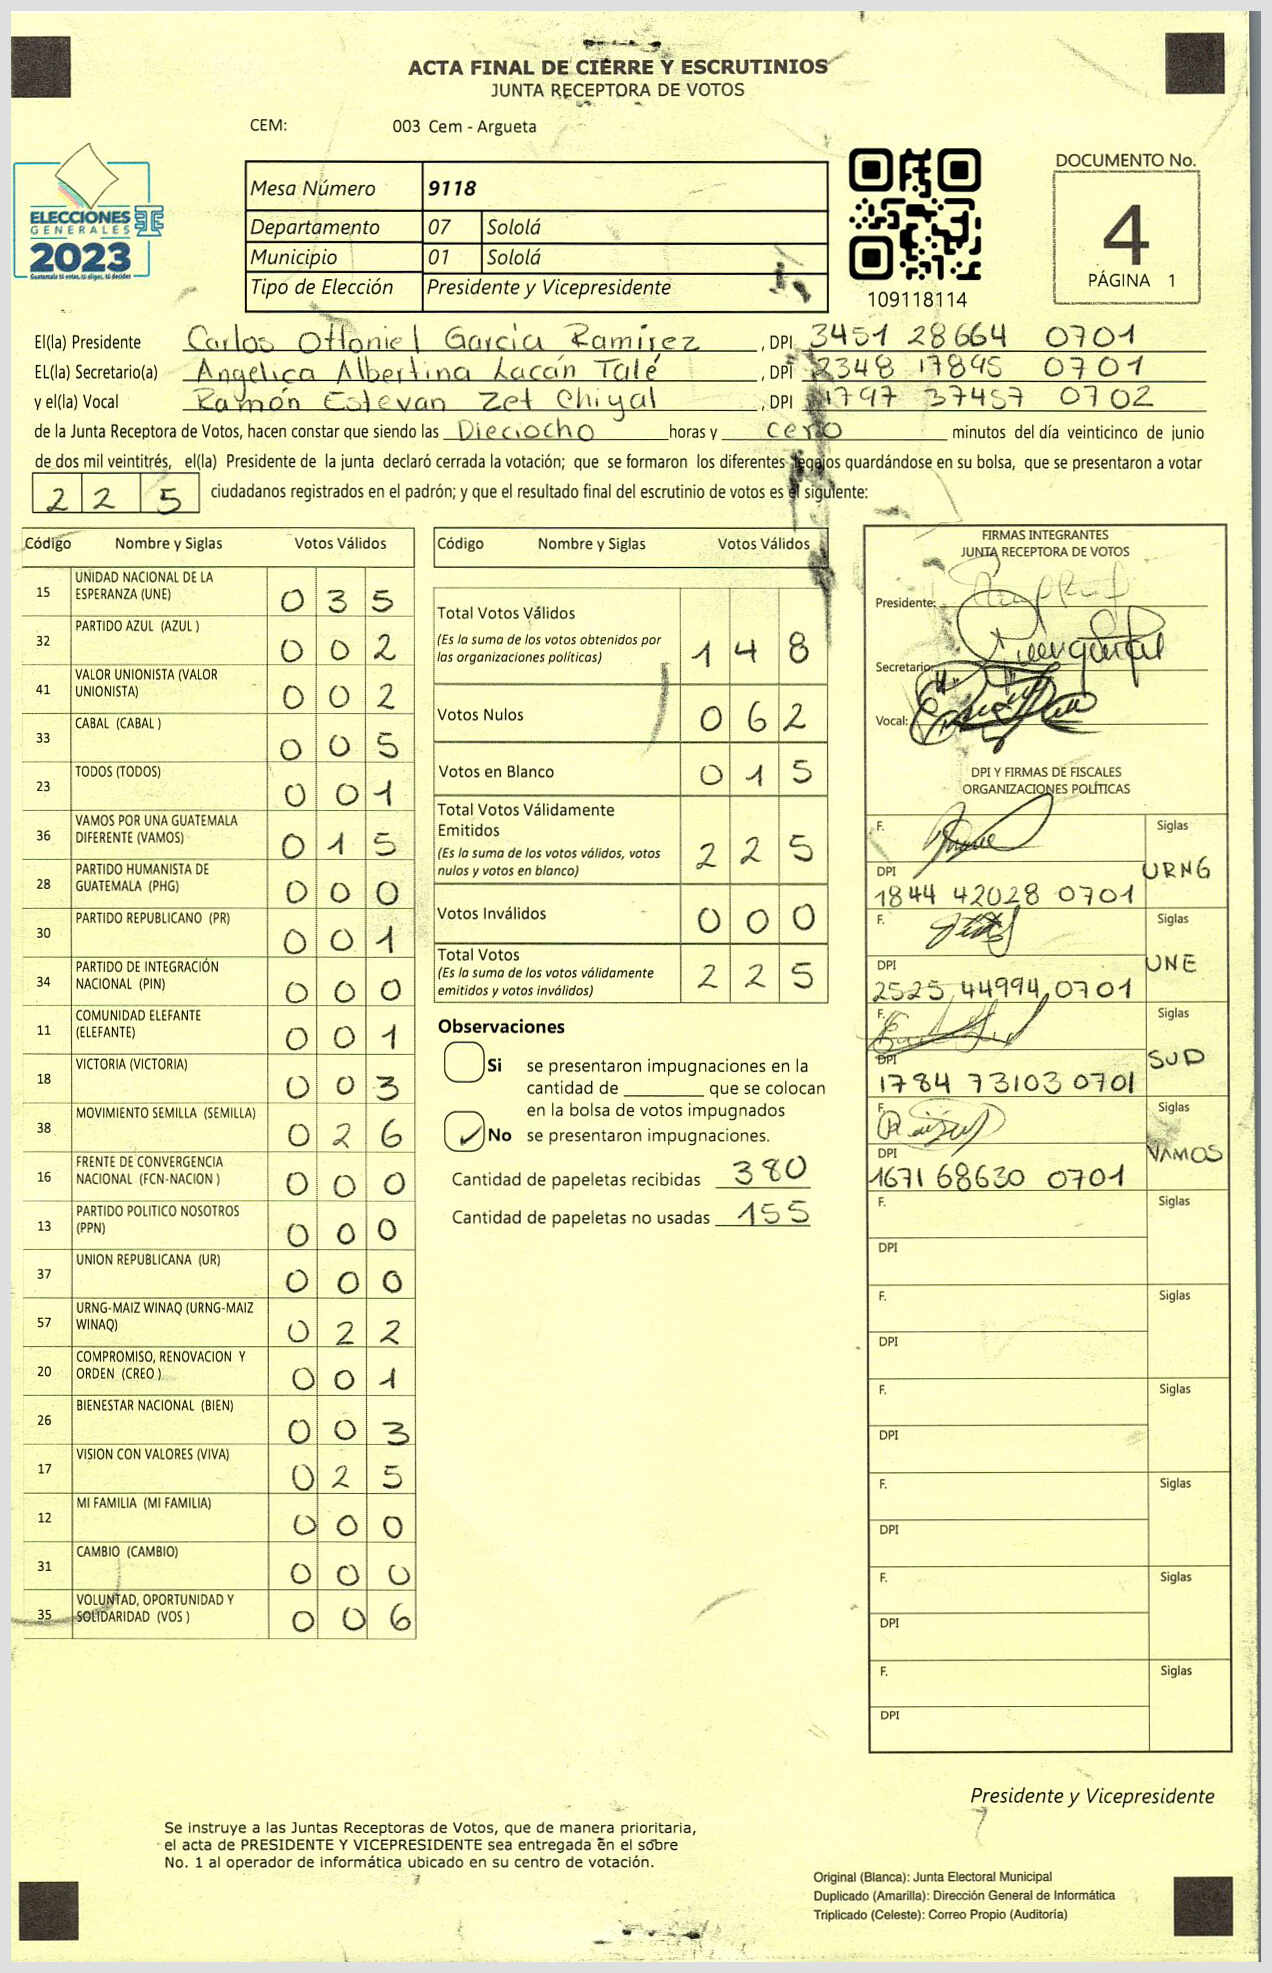 ACTA FINAL DE CIERRE Y ESCRUTINIOS
JUNTA RECEPTORA DE VOTOS
CEM: 003 Cem - Argueta
ELECCIONES
GENERALES
2023
Guatemala tú votas, tú eliges, tú decides
Mesa Número 9118
Departamento 07 Sololá
Municipio 01 Sololá
Tipo de Elección Presidente y Vicepresidente
109118114
DOCUMENTO No.
4
PÁGINA 1
El(la) Presidente Carlos Ottoniel García Ramírez, DPI 3451 28664 0701
EL(la) Secretario(a) Angelica Albertina Lacán Talé, DPI 2348 17895 0701
y el(la) Vocal Ramón Estevan Zet Chiyal, DPI 1797 37457 0702
de la Junta Receptora de Votos, hacen constar que siendo las Dieciocho horas y cero minutos del día veinticinco de junio
de dos mil veintitrés, el(la) Presidente de la junta declaró cerrada la votación; que se formaron los diferentes legajos guardándose en su bolsa, que se presentaron a votar
2 2 5 ciudadanos registrados en el padrón; y que el resultado final del escrutinio de votos es el siguiente:
Código Nombre y Siglas Votos Válidos
15 UNIDAD NACIONAL DE LA ESPERANZA (UNE) 0 3 5
32 PARTIDO AZUL (AZUL ) 0 0 2
41 VALOR UNIONISTA (VALOR UNIONISTA) 0 0 2
33 CABAL (CABAL ) 0 0 5
23 TODOS (TODOS) 0 0 1
36 VAMOS POR UNA GUATEMALA DIFERENTE (VAMOS) 0 1 5
28 PARTIDO HUMANISTA DE GUATEMALA (PHG) 0 0 0
30 PARTIDO REPUBLICANO (PR) 0 0 1
34 PARTIDO DE INTEGRACIÓN NACIONAL (PIN) 0 0 0
11 COMUNIDAD ELEFANTE (ELEFANTE) 0 0 1
18 VICTORIA (VICTORIA) 0 0 3
38 MOVIMIENTO SEMILLA (SEMILLA) 0 2 6
16 FRENTE DE CONVERGENCIA NACIONAL (FCN-NACION ) 0 0 0
13 PARTIDO POLITICO NOSOTROS (PPN) 0 0 0
37 UNION REPUBLICANA (UR) 0 0 0
57 URNG-MAIZ WINAQ (URNG-MAIZ WINAQ) 0 2 2
20 COMPROMISO, RENOVACION Y ORDEN (CREO ) 0 0 1
26 BIENESTAR NACIONAL (BIEN) 0 0 3
17 VISION CON VALORES (VIVA) 0 2 5
12 MI FAMILIA (MI FAMILIA) 0 0 0
31 CAMBIO (CAMBIO) 0 0 0
35 VOLUNTAD, OPORTUNIDAD Y SOLIDARIDAD (VOS ) 0 0 6
Código Nombre y Siglas Votos Válidos
Total Votos Válidos 1 4 8
(Es la suma de los votos obtenidos por
las organizaciones politicas)
Votos Nulos 0 6 2
Votos en Blanco 0 1 5
Total Votos Válidamente
Emitidos 2 2 5
(Es la suma de los votos válidos, votos
nulos y votos en blanco)
Votos Inválidos 0 0 0
Total Votos 2 2 5
(Es la suma de los votos válidamente
emitidos y votos inválidos)
Observaciones
Si se presentaron impugnaciones en la
cantidad de ________ que se colocan
en la bolsa de votos impugnados
No se presentaron impugnaciones.
Cantidad de papeletas recibidas 380
Cantidad de papeletas no usadas 155
FIRMAS INTEGRANTES
JUNTA RECEPTORA DE VOTOS
Presidente:
Secretario:
Vocal:
DPI Y FIRMAS DE FISCALES
ORGANIZACIONES POLÍTICAS
F. Siglas
URNG
DPI
1844 42028 0701
F. Siglas
UNE
DPI
2525 44994 0701
F. Siglas
SUD
DPI
1784 73103 0701
F. Siglas
VAMOS
DPI
1671 68630 0701
F. Siglas
DPI
F. Siglas
DPI
F. Siglas
DPI
F. Siglas
DPI
F. Siglas
DPI
F. Siglas
DPI
Presidente y Vicepresidente
Se instruye a las Juntas Receptoras de Votos, que de manera prioritaria,
el acta de PRESIDENTE Y VICEPRESIDENTE sea entregada en el sobre
No. 1 al operador de informática ubicado en su centro de votación.
Original (Blanca): Junta Electoral Municipal
Duplicado (Amarilla): Dirección General de Informática
Triplicado (Celeste): Correo Propio (Auditoría)